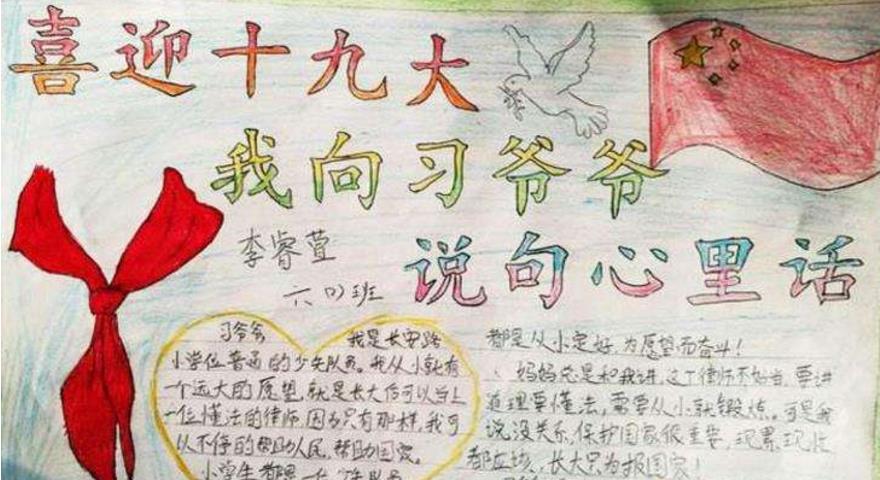 喜迎十九大
我向习爷爷
说句心里话
李睿萱
六(7)班
习爷爷
我是长安路
小学位普通的少先队员。我从小就有
一个远大的愿望,就是长大后可以当上
一位懂法的律师,因为只有那样,我可
以不停的帮助人民,帮助国家。
小学生都是一
都是从小定好,为愿望而奋斗!
妈妈总是和我讲,这个律师不好当,要讲
道理要懂法,需要从小就锻炼。可是我
说,没关系,保护国家很重要,现累现忙
都应该,长大只为报国家!